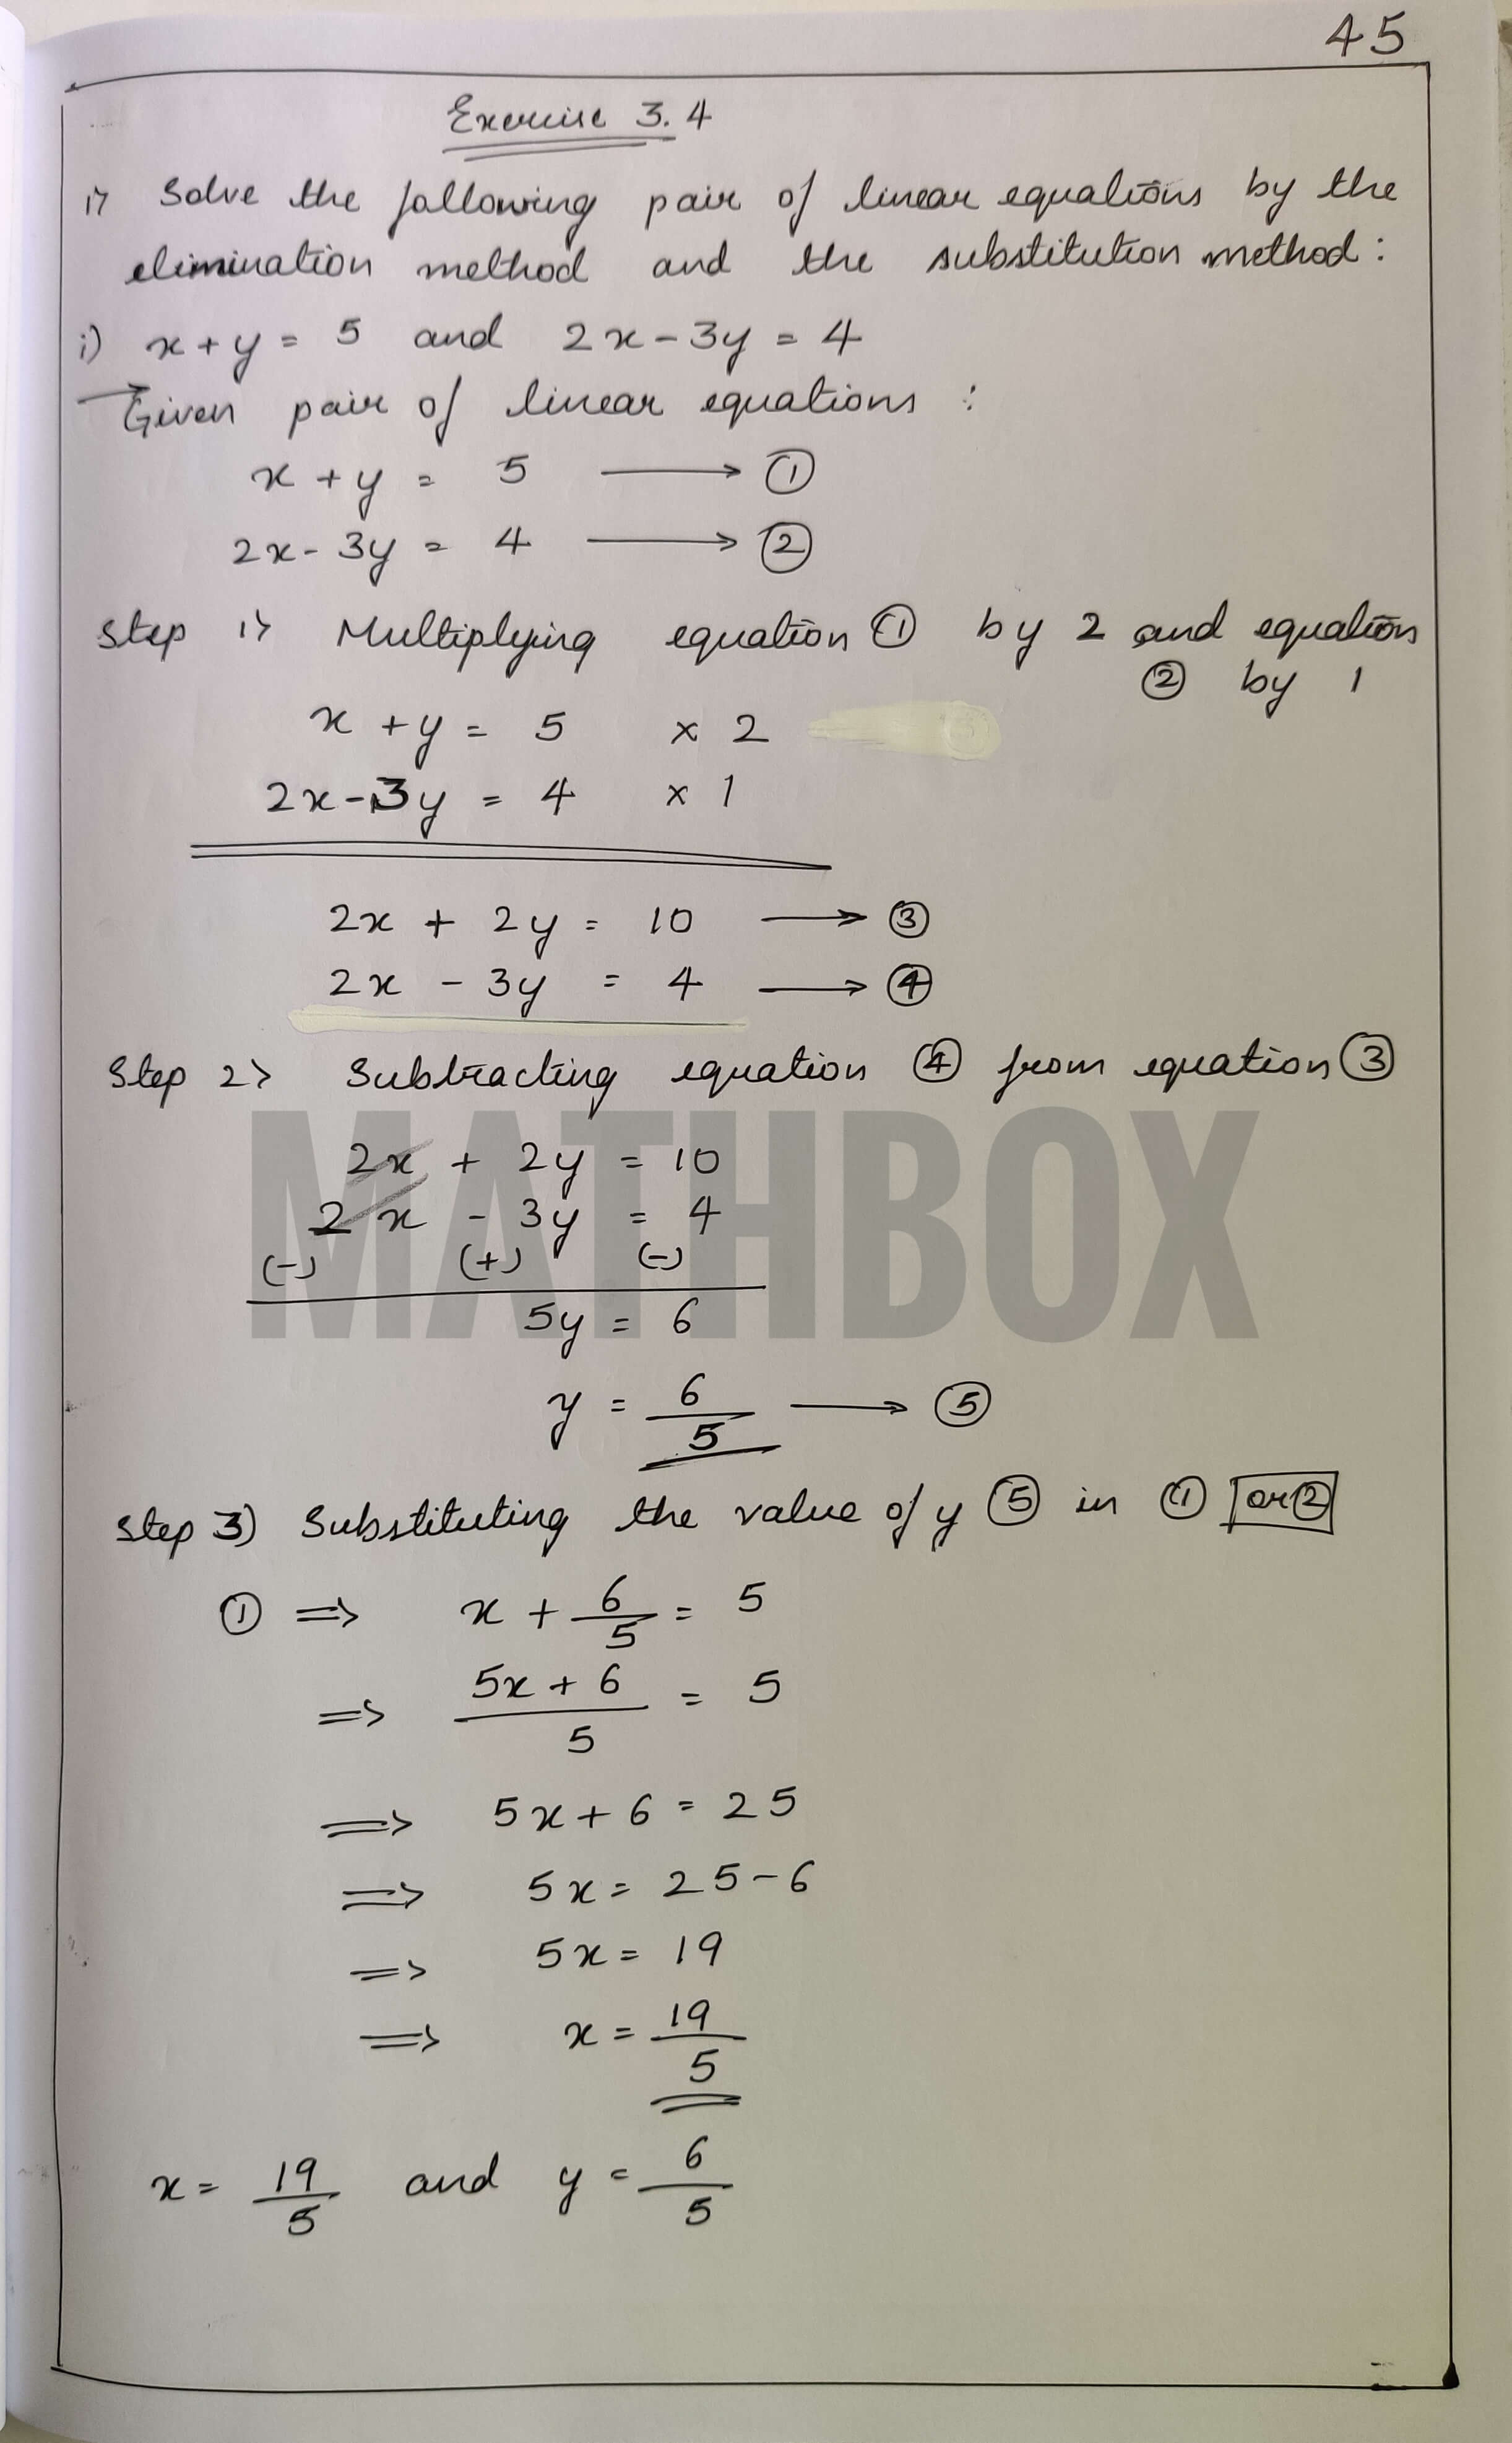 45
Exercise 3.4
1> Solve the following pair of linear equations by the
elimination method and the substitution method :
i) x + y = 5 and 2x - 3y = 4
→ Given pair of linear equations :
x + y = 5 ⟶ ①
2x - 3y = 4 ⟶ ②
Step 1> Multiplying equation ① by 2 and equation
② by 1
x + y = 5 × 2
2x - 3y = 4 × 1
2x + 2y = 10 ⟶ ③
2x - 3y = 4 ⟶ ④
Step 2> Subtracting equation ④ from equation ③
MATHBOX
2x + 2y = 10
2x - 3y = 4
(-) (+) (-)
5y = 6
y = 6/5 ⟶ ⑤
Step 3) Substituting the value of y ⑤ in ① or ②
① ⇒ x + 6/5 = 5
⇒ 5x + 6/5 = 5
⇒ 5x + 6 = 25
⇒ 5x = 25 - 6
⇒ 5x = 19
⇒ x = 19/5
x = 19/5 and y = 6/5